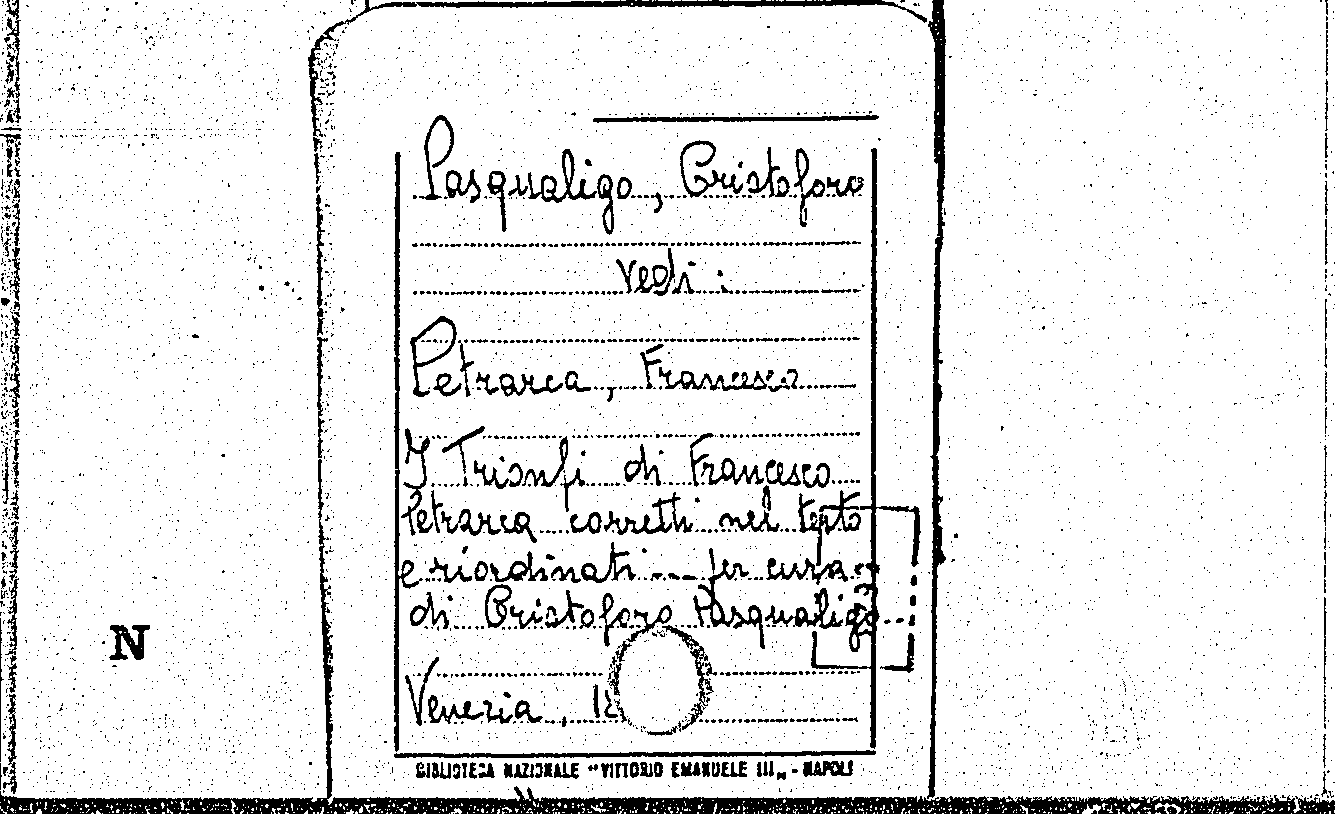 Pasqualigo, Cristoforo
vedi :
Petrarca, Francesco
I Trionfi di Francesco
Petrarca corretti nel testo
e riordinati ... per cura
di Cristoforo Pasqualigo
Venezia, 18
N
BIBLIOTECA NAZIONALE "VITTORIO EMANUELE III„ - NAPOLI